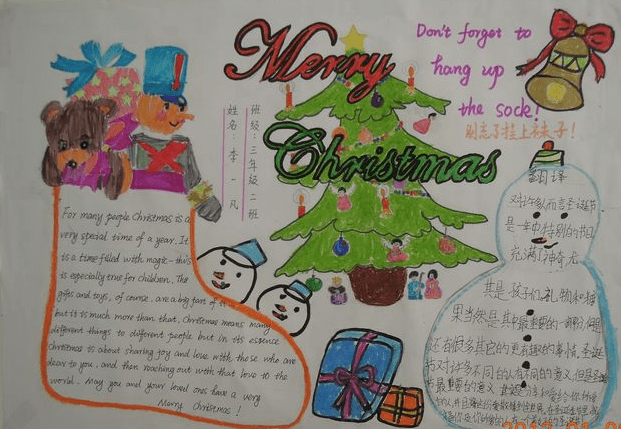 Merry
Christmas
Don't forget to
hang up
the sock!
别忘了挂上袜子!
班级:三年级二班
姓名:李一凡
For many people Christmas is a
very special time of a year. It
is a time filled with magic - this
is especially true for children. The
gifts and toys, of course, are a big part of it
but it is much more than that. Christmas means many
different things to different people but in its essence
christmas is about sharing joy and love with those who are
dear to you, and then reaching out with that love to the
world. May you and your loved ones have a very
Merry Christmas!
翻译
对许多人而言圣诞节
是一年中特别的节日
充满了神奇尤
其是孩子们,礼物和糖
果当然是其中最重要的一部分,但是
还有很多其它的更有趣的事情,圣诞
节对许多不同的人有不同的意义,但是圣诞
节最重要的意义